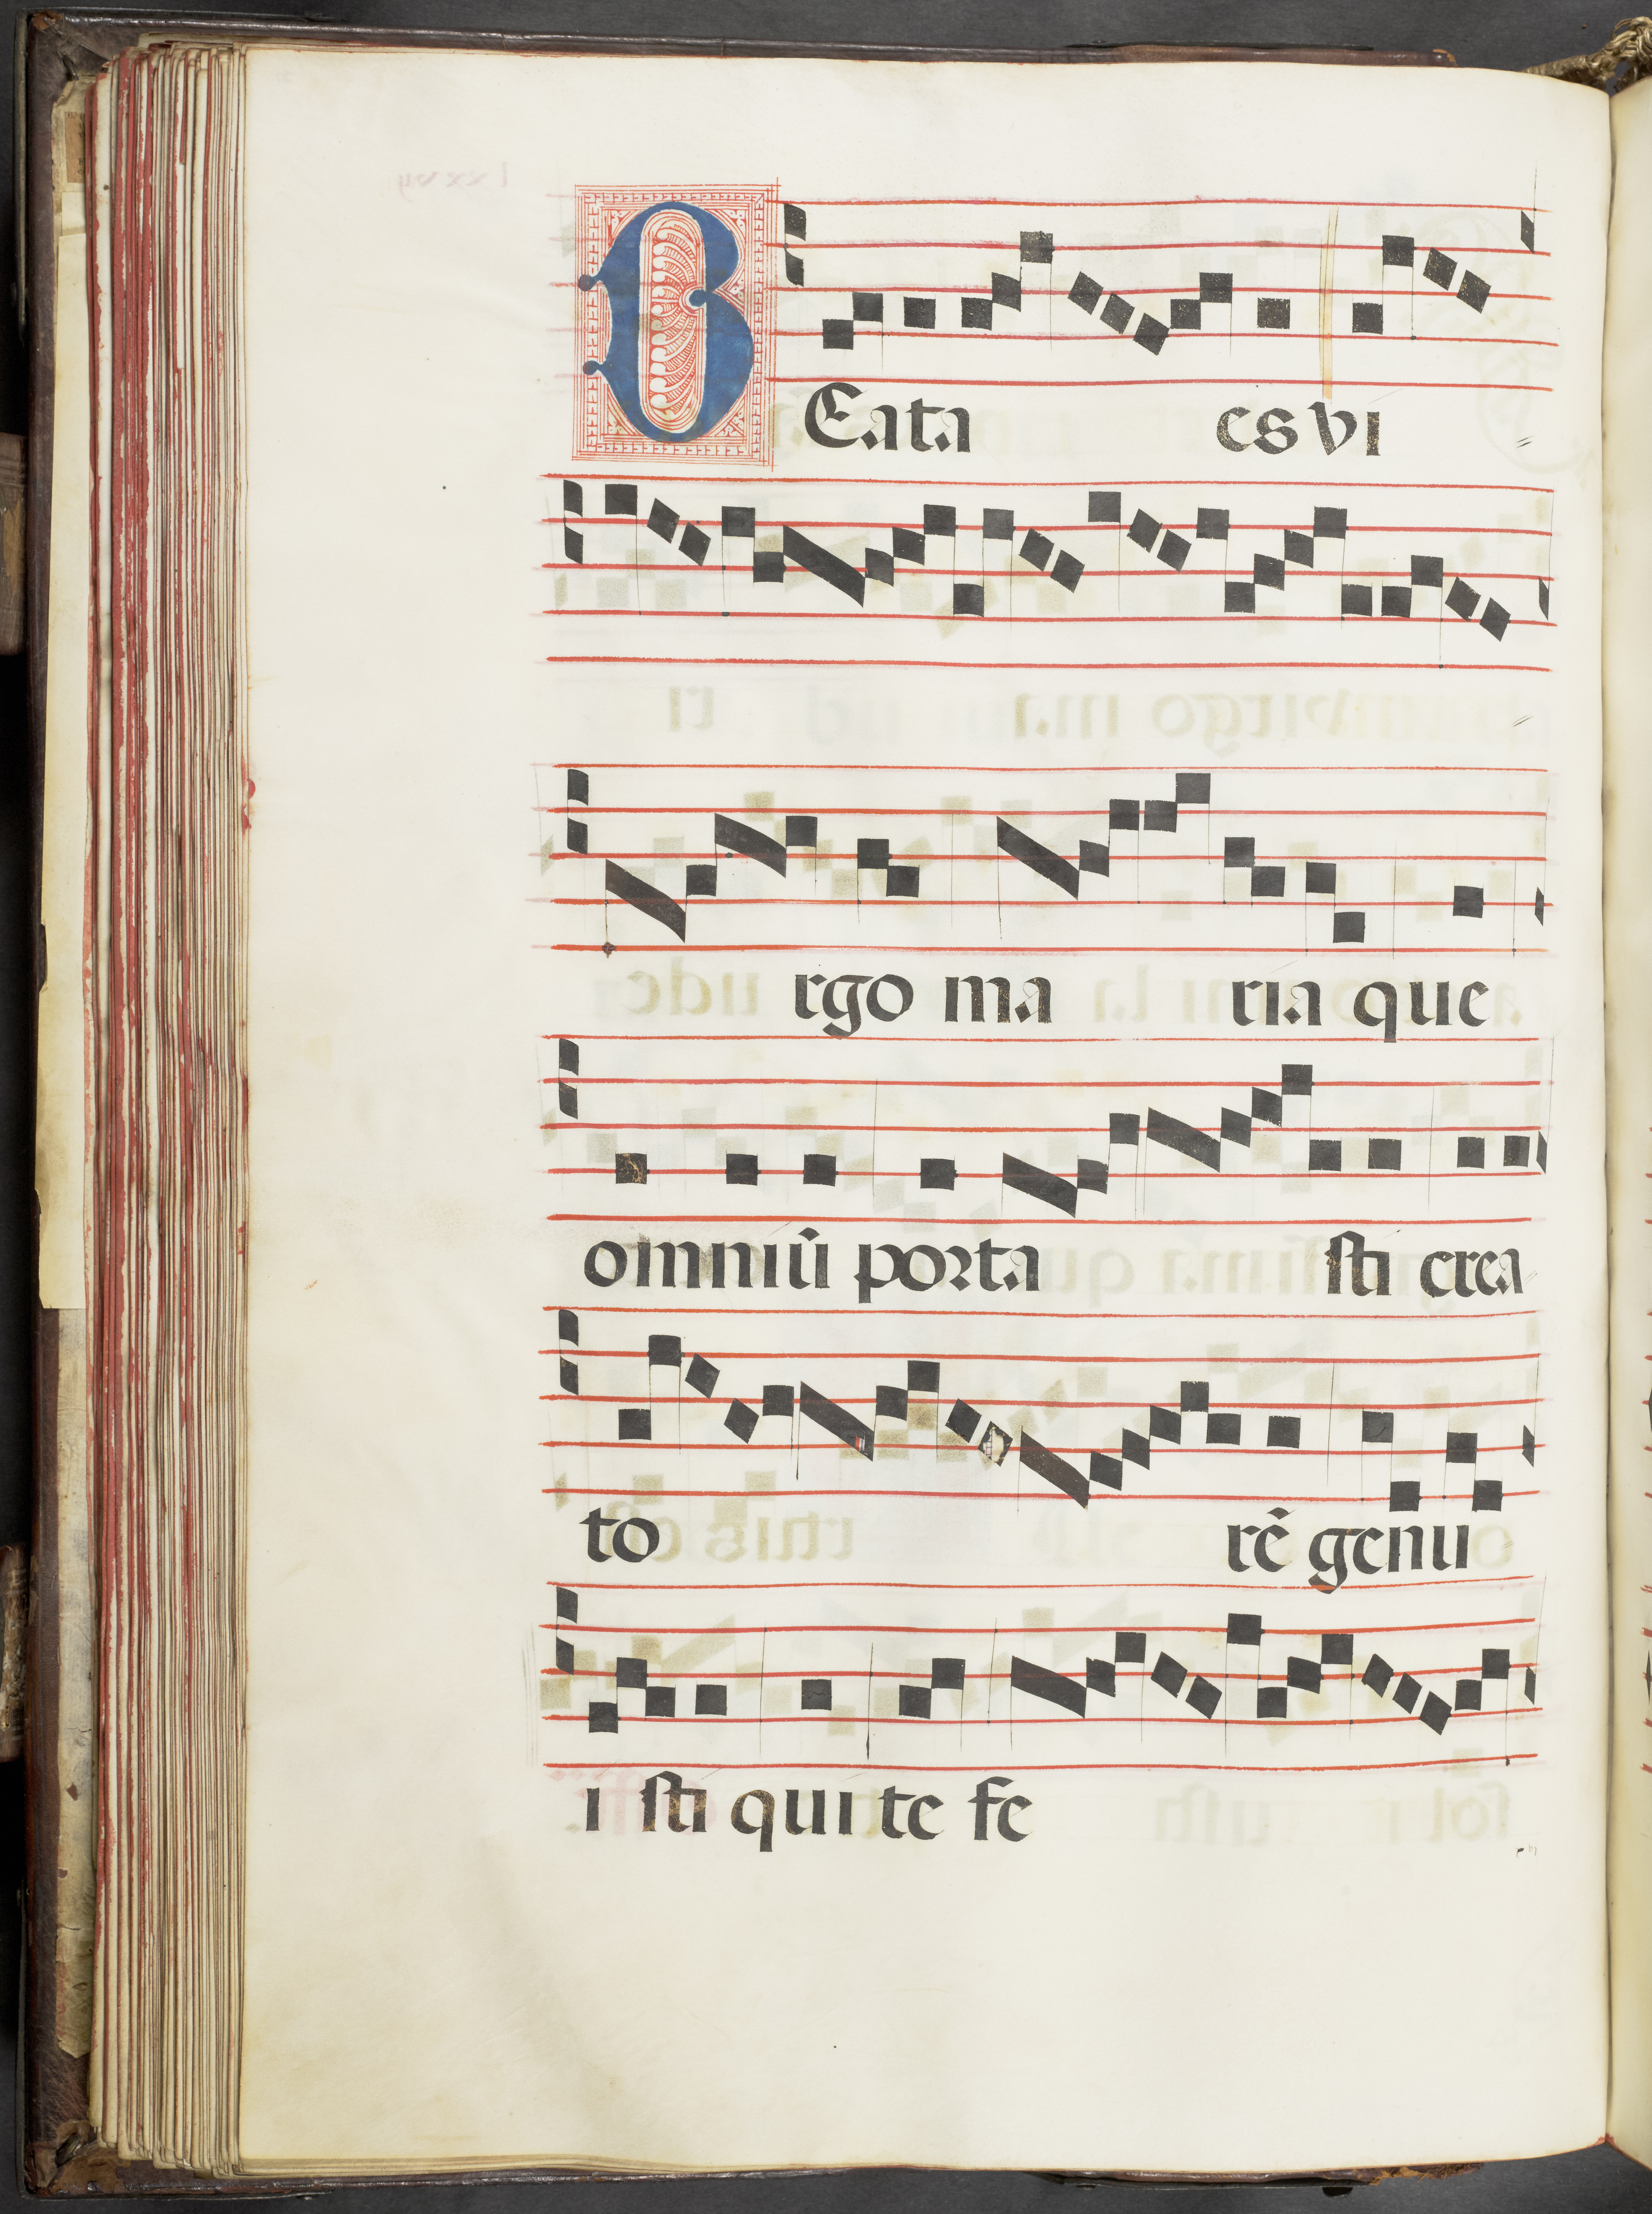 BEata es vi
rgo ma ria que
omniū porta sti crea
to rē genu
i sti qui te fe